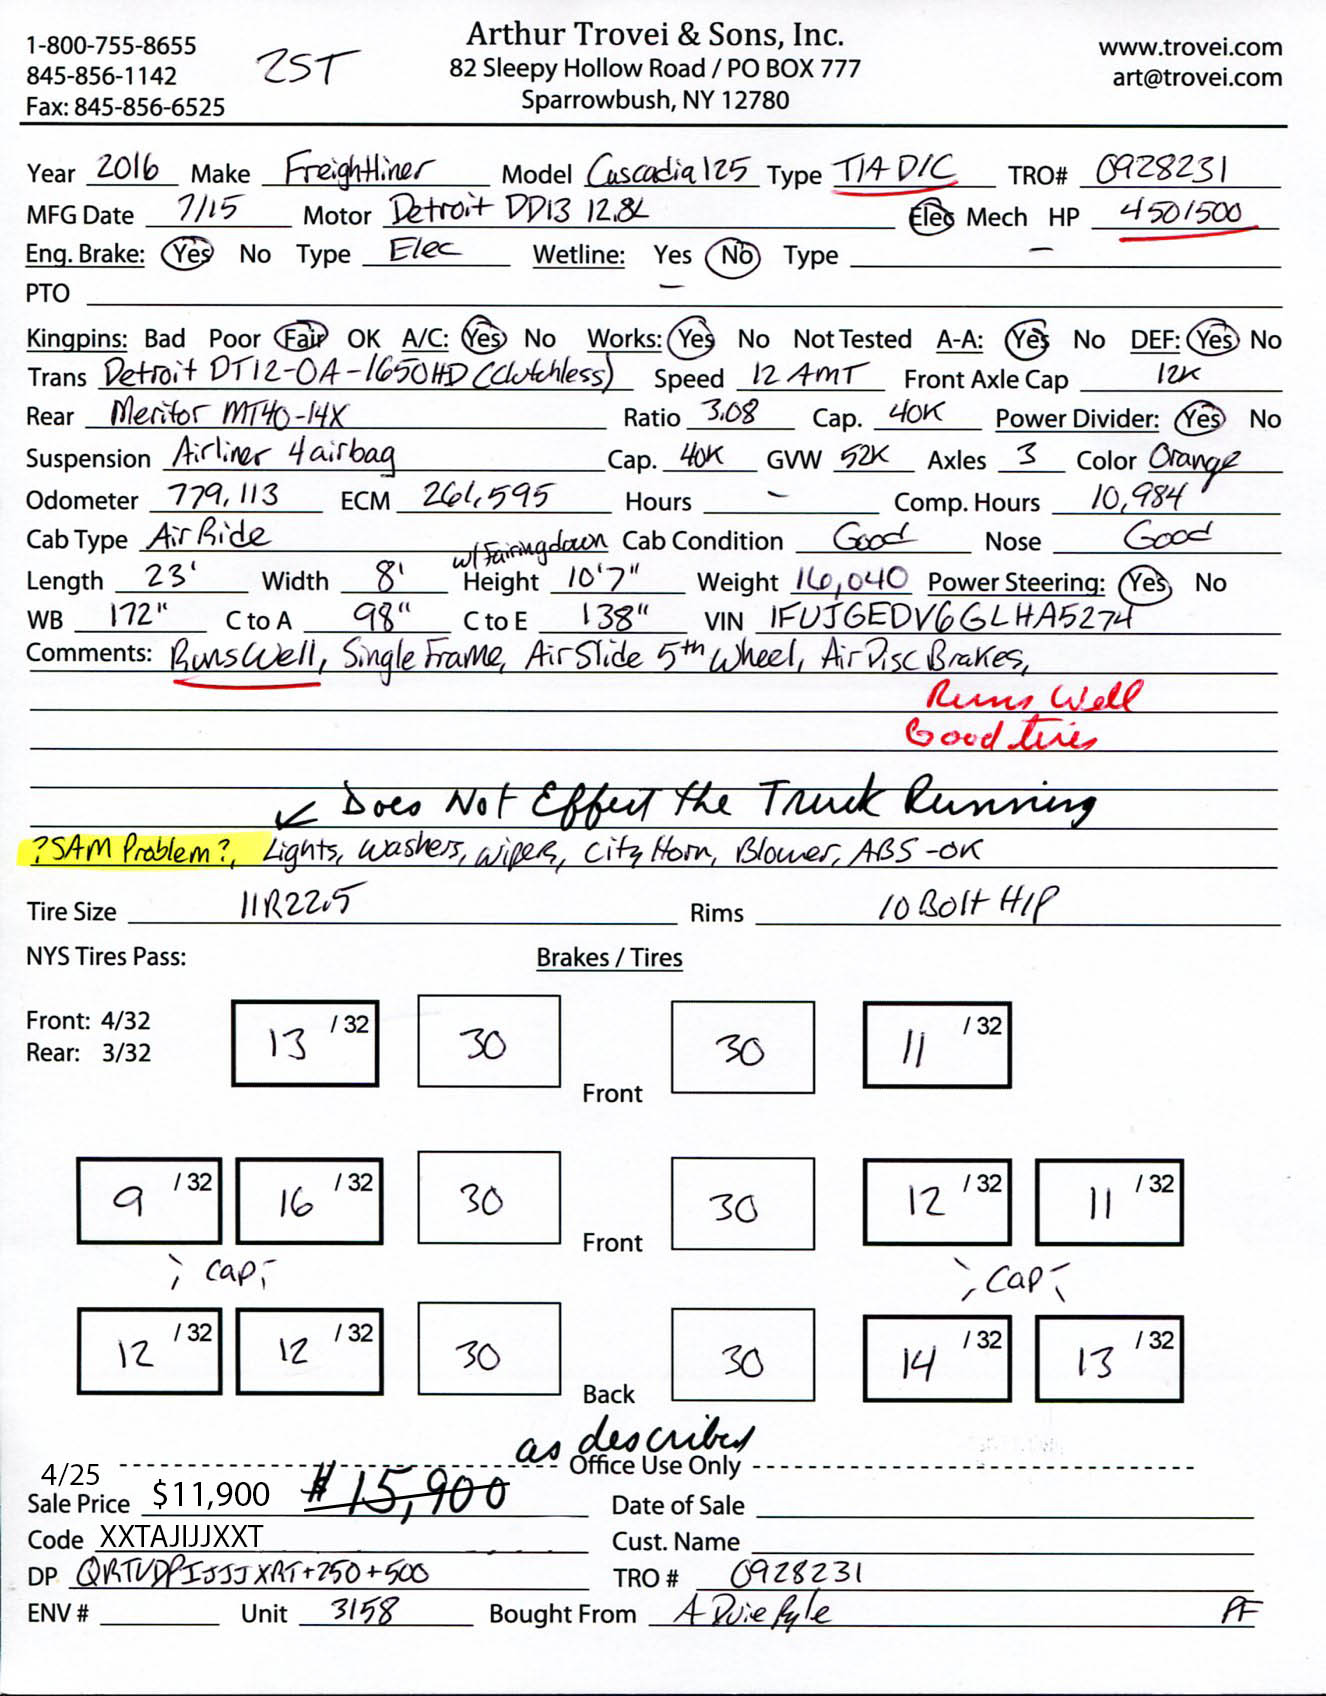 1-800-755-8655
845-856-1142
Fax: 845-856-6525
2ST
Arthur Trovei & Sons, Inc.
82 Sleepy Hollow Road / PO BOX 777
Sparrowbush, NY 12780
www.trovei.com
art@trovei.com
Year 2016 Make Freightliner Model Cascadia 125 Type T/A D/C TRO# 0928231
MFG Date 7/15 Motor Detroit DD13 12.8L Elec Mech HP 450/500
Eng. Brake: Yes No Type Elec Wetline: Yes No Type —
PTO —
Kingpins: Bad Poor Fair OK A/C: Yes No Works: Yes No Not Tested A-A: Yes No DEF: Yes No
Trans Detroit DT12-OA-1650HD (Clutchless) Speed 12 AMT Front Axle Cap 12K
Rear Meritor MT40-14X Ratio 3.08 Cap. 40K Power Divider: Yes No
Suspension Airliner 4 airbag Cap. 40K GVW 52K Axles 3 Color Orange
Odometer 779,113 ECM 261,595 Hours - Comp. Hours 10,984
Cab Type Air Ride Cab Condition Good Nose Good
w/ Fairing down
Length 23' Width 8' Height 10'7" Weight 16,040 Power Steering: Yes No
WB 172" C to A 98" C to E 138" VIN 1FUJGEDV6GLHA5274
Comments: Runs Well, Single Frame, Air Slide 5th Wheel, Air Disc Brakes,
Runs Well
Good tires
↙ Does Not Effect the Truck Running
?SAM Problem?, Lights, washers, wipers, City Horn, Blower, ABS-OK
Tire Size 11R22.5 Rims 10 Bolt H/P
NYS Tires Pass: Brakes / Tires
Front: 4/32
Rear: 3/32
13 /32 30 30 11 /32
Front
9 /32 16 /32 30 30 12 /32 11 /32
Front
Cap Cap
12 /32 12 /32 30 30 14 /32 13 /32
Back
as described
Office Use Only
4/25
Sale Price $11,900 $15,900 Date of Sale
Code XXTAJIJJXXT Cust. Name
DP QRTVDPIJJJXRT+250+500 TRO # 0928231
ENV # Unit 3158 Bought From A Duie Pyle PF